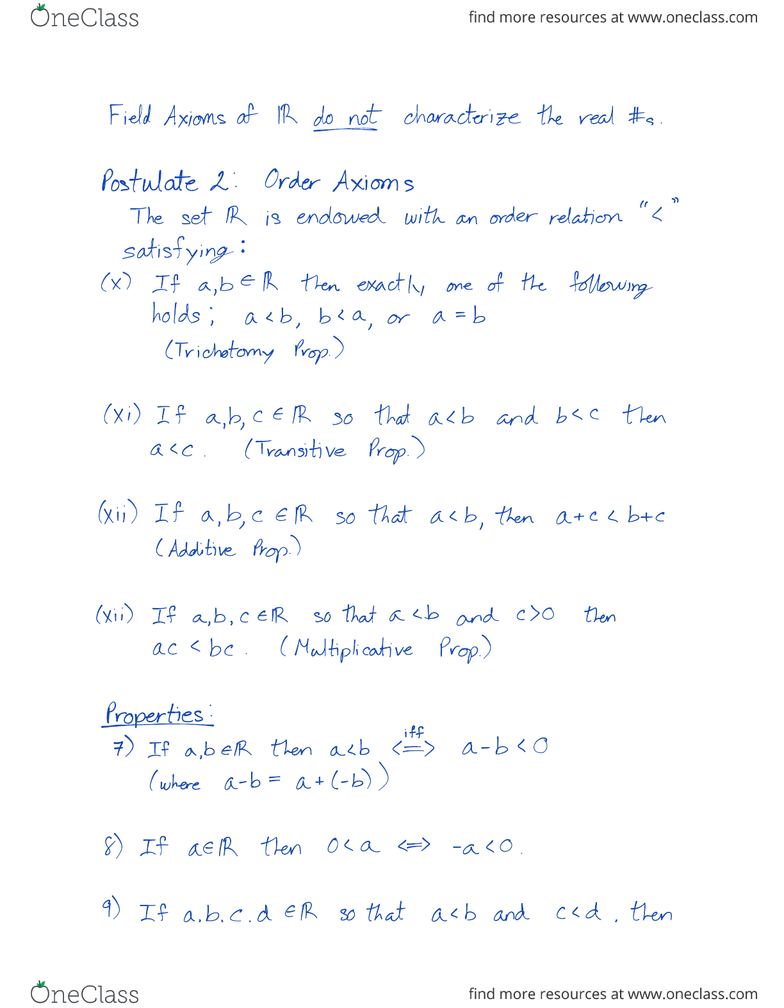 OneClass
find more resources at www.oneclass.com
Field Axioms of ℝ do not characterize the real #s.
Postulate 2: Order Axioms
The set ℝ is endowed with an order relation "<"
satisfying:
(x) If a,b ∈ ℝ then exactly one of the following
holds; a<b, b<a, or a = b
(Trichotomy Prop.)
(xi) If a,b,c ∈ ℝ so that a<b and b<c then
a<c. (Transitive Prop.)
(xii) If a,b,c ∈ ℝ so that a<b, then a+c < b+c
(Additive Prop.)
(xii) If a,b,c ∈ ℝ so that a<b and c>0 then
ac < bc. (Multiplicative Prop.)
Properties:
iff
7) If a,b∈ℝ then a<b <=> a-b<0
(where a-b = a+(-b))
8) If a∈ℝ then 0<a <=> -a<0.
9) If a.b.c.d ∈ℝ so that a<b and c<d, then
OneClass
find more resources at www.oneclass.com